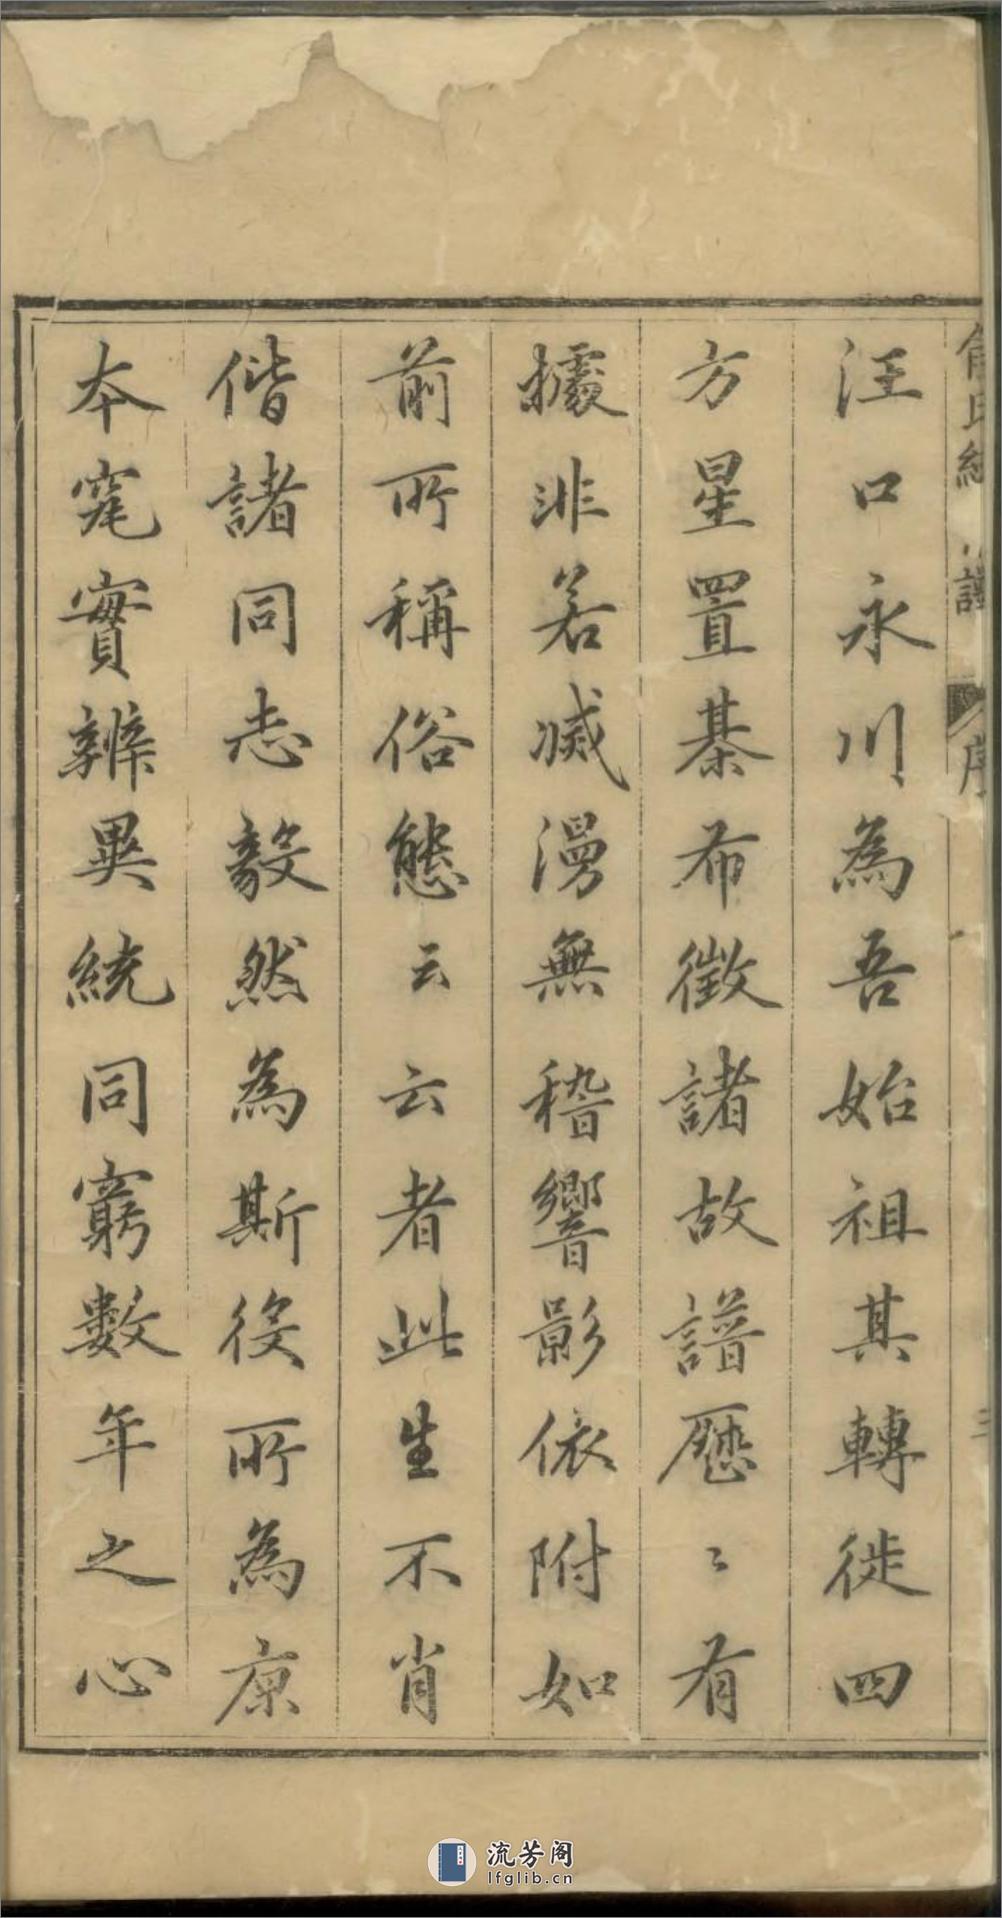 俞氏統譜 序
汪口永川為吾始祖其轉徙四
方星置棊布徵諸故譜歷〻有
據非若滅漫無稽響影依附如
前所稱俗態云云者此生不肖
偕諸同志毅然為斯役所為原
本窮實辨異統同窮數年之心
流芳阁
lfglib.cn